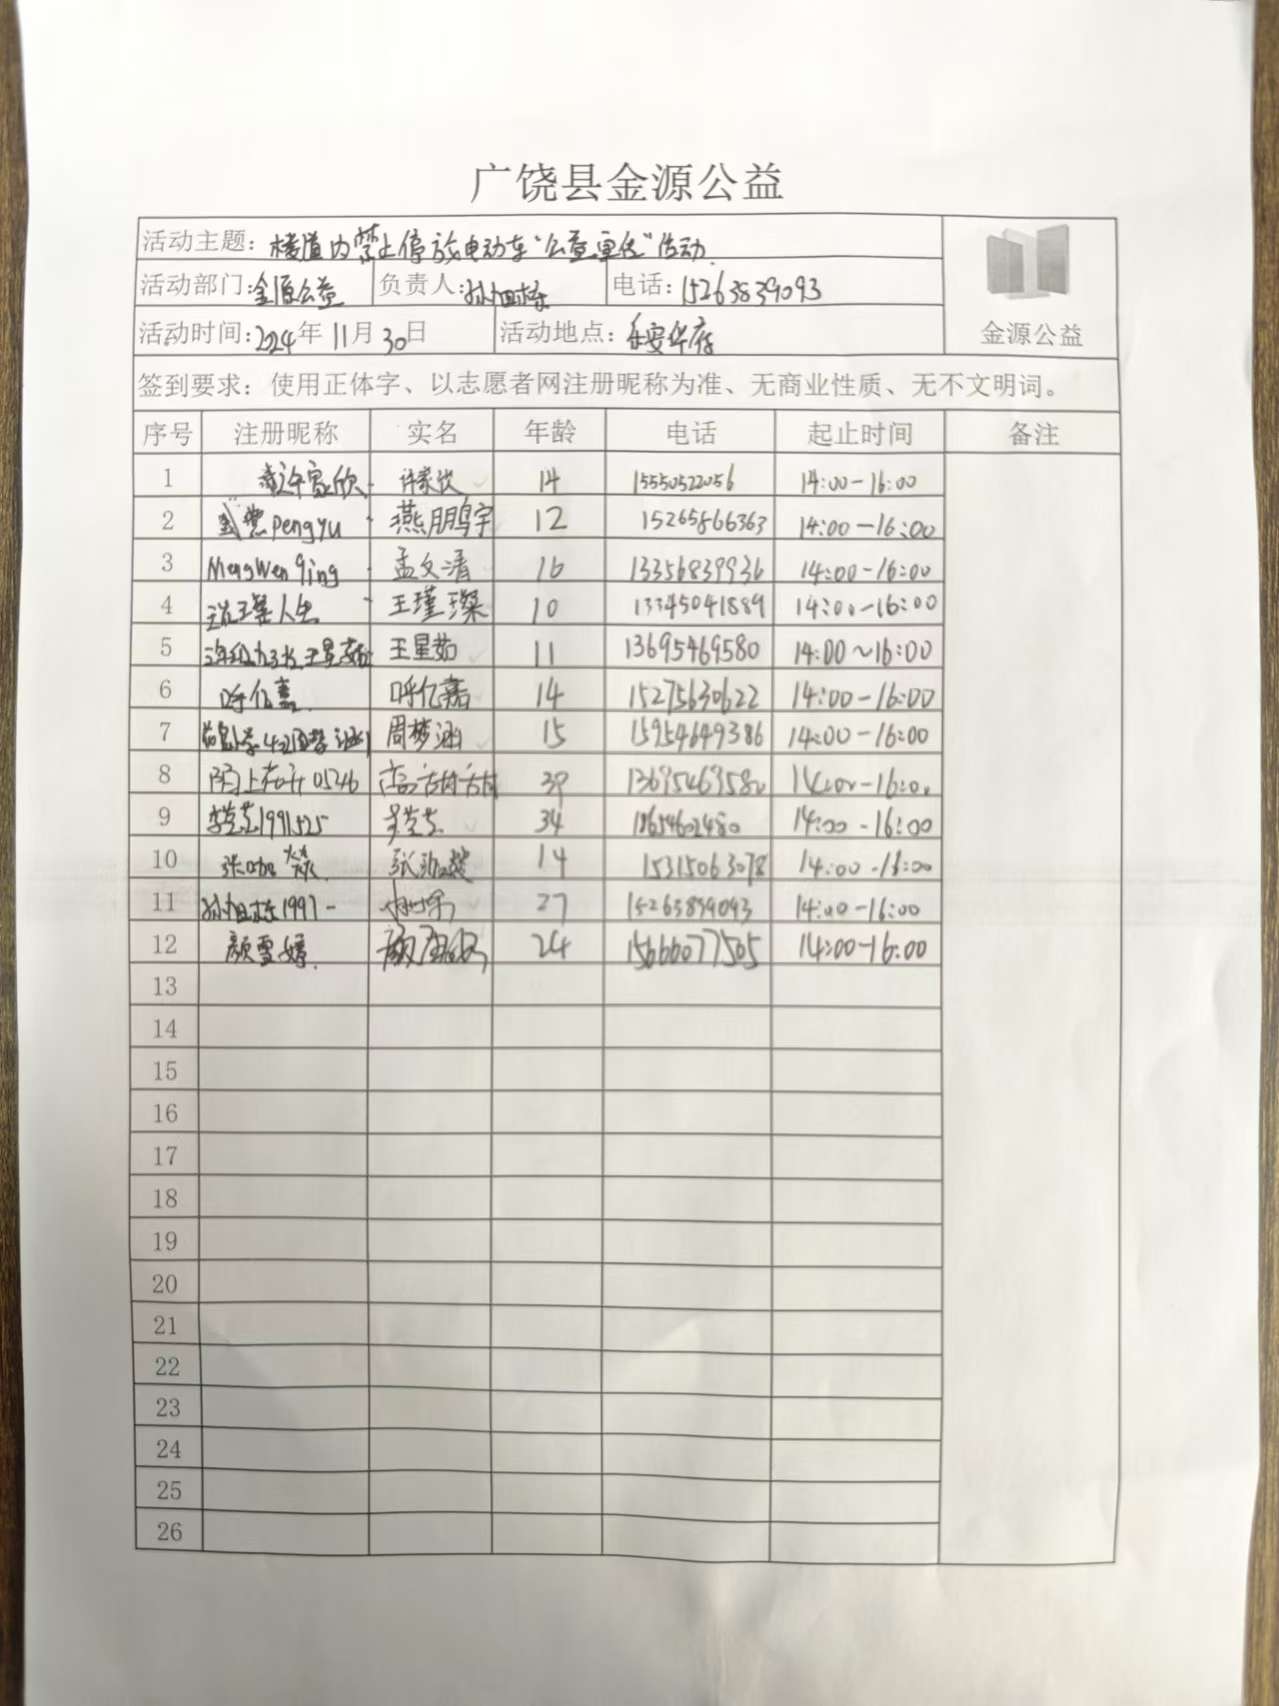 广饶县金源公益
活动主题：楼道内禁止停放电动车"公益宣传"活动.
活动部门：金源公益 负责人：孙旭栋 电话：15263839093
活动时间：2024年 11月 30日 活动地点：乐安华府 金源公益
签到要求：使用正体字、以志愿者网注册昵称为准、无商业性质、无不文明词。
序号 注册昵称 实名 年龄 电话 起止时间 备注
1 许家欣 许家欣 14 15550522056 14:00-16:00
2 Pengyu 燕鹏宇 12 15265866363 14:00-16:00
3 MengWenqing 孟文清 16 13356839936 14:00-16:00
4 人生 王瑾璨 10 13345041889 14:00-16:00
5 王星茹 王星茹 11 13695469580 14:00~16:00
6 呼亿嘉. 呼亿嘉 14 15275630622 14:00-16:00
7 周梦涵 周梦涵 15 15954649386 14:00-16:00
8 陌上花开0546 39 13695469580 14:00-16:00
9 1991525 34 18654602480 14:00-16:00
10 张 张 14 15315063078 14:00-16:00
11 孙旭栋1997- 27 15263839093 14:00-16:00
12 颜雪婷. 24 15666077505 14:00-16:00
13
14
15
16
17
18
19
20
21
22
23
24
25
26